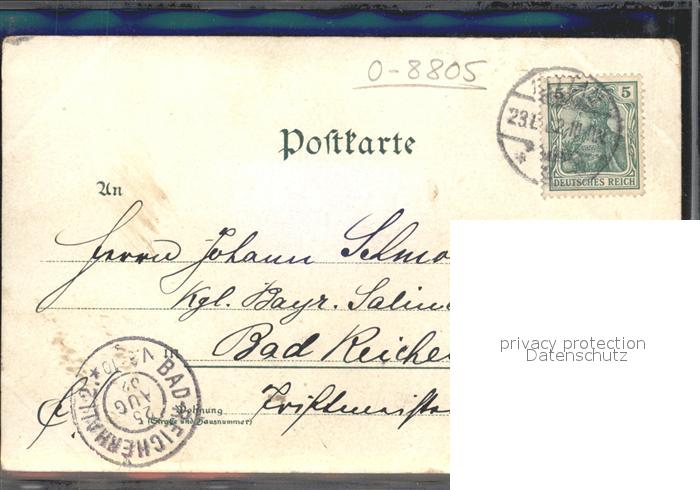 0-8805
Postkarte
5 5
DEUTSCHES REICH
An
Herrn Johann Schmo
Kgl. Bayr. Salin
Bad Reichen
Wohnung
(Straße und Hausnummer)
Triftmeister
BAD REICHENHALL
25
AUG
privacy protection
Datenschutz